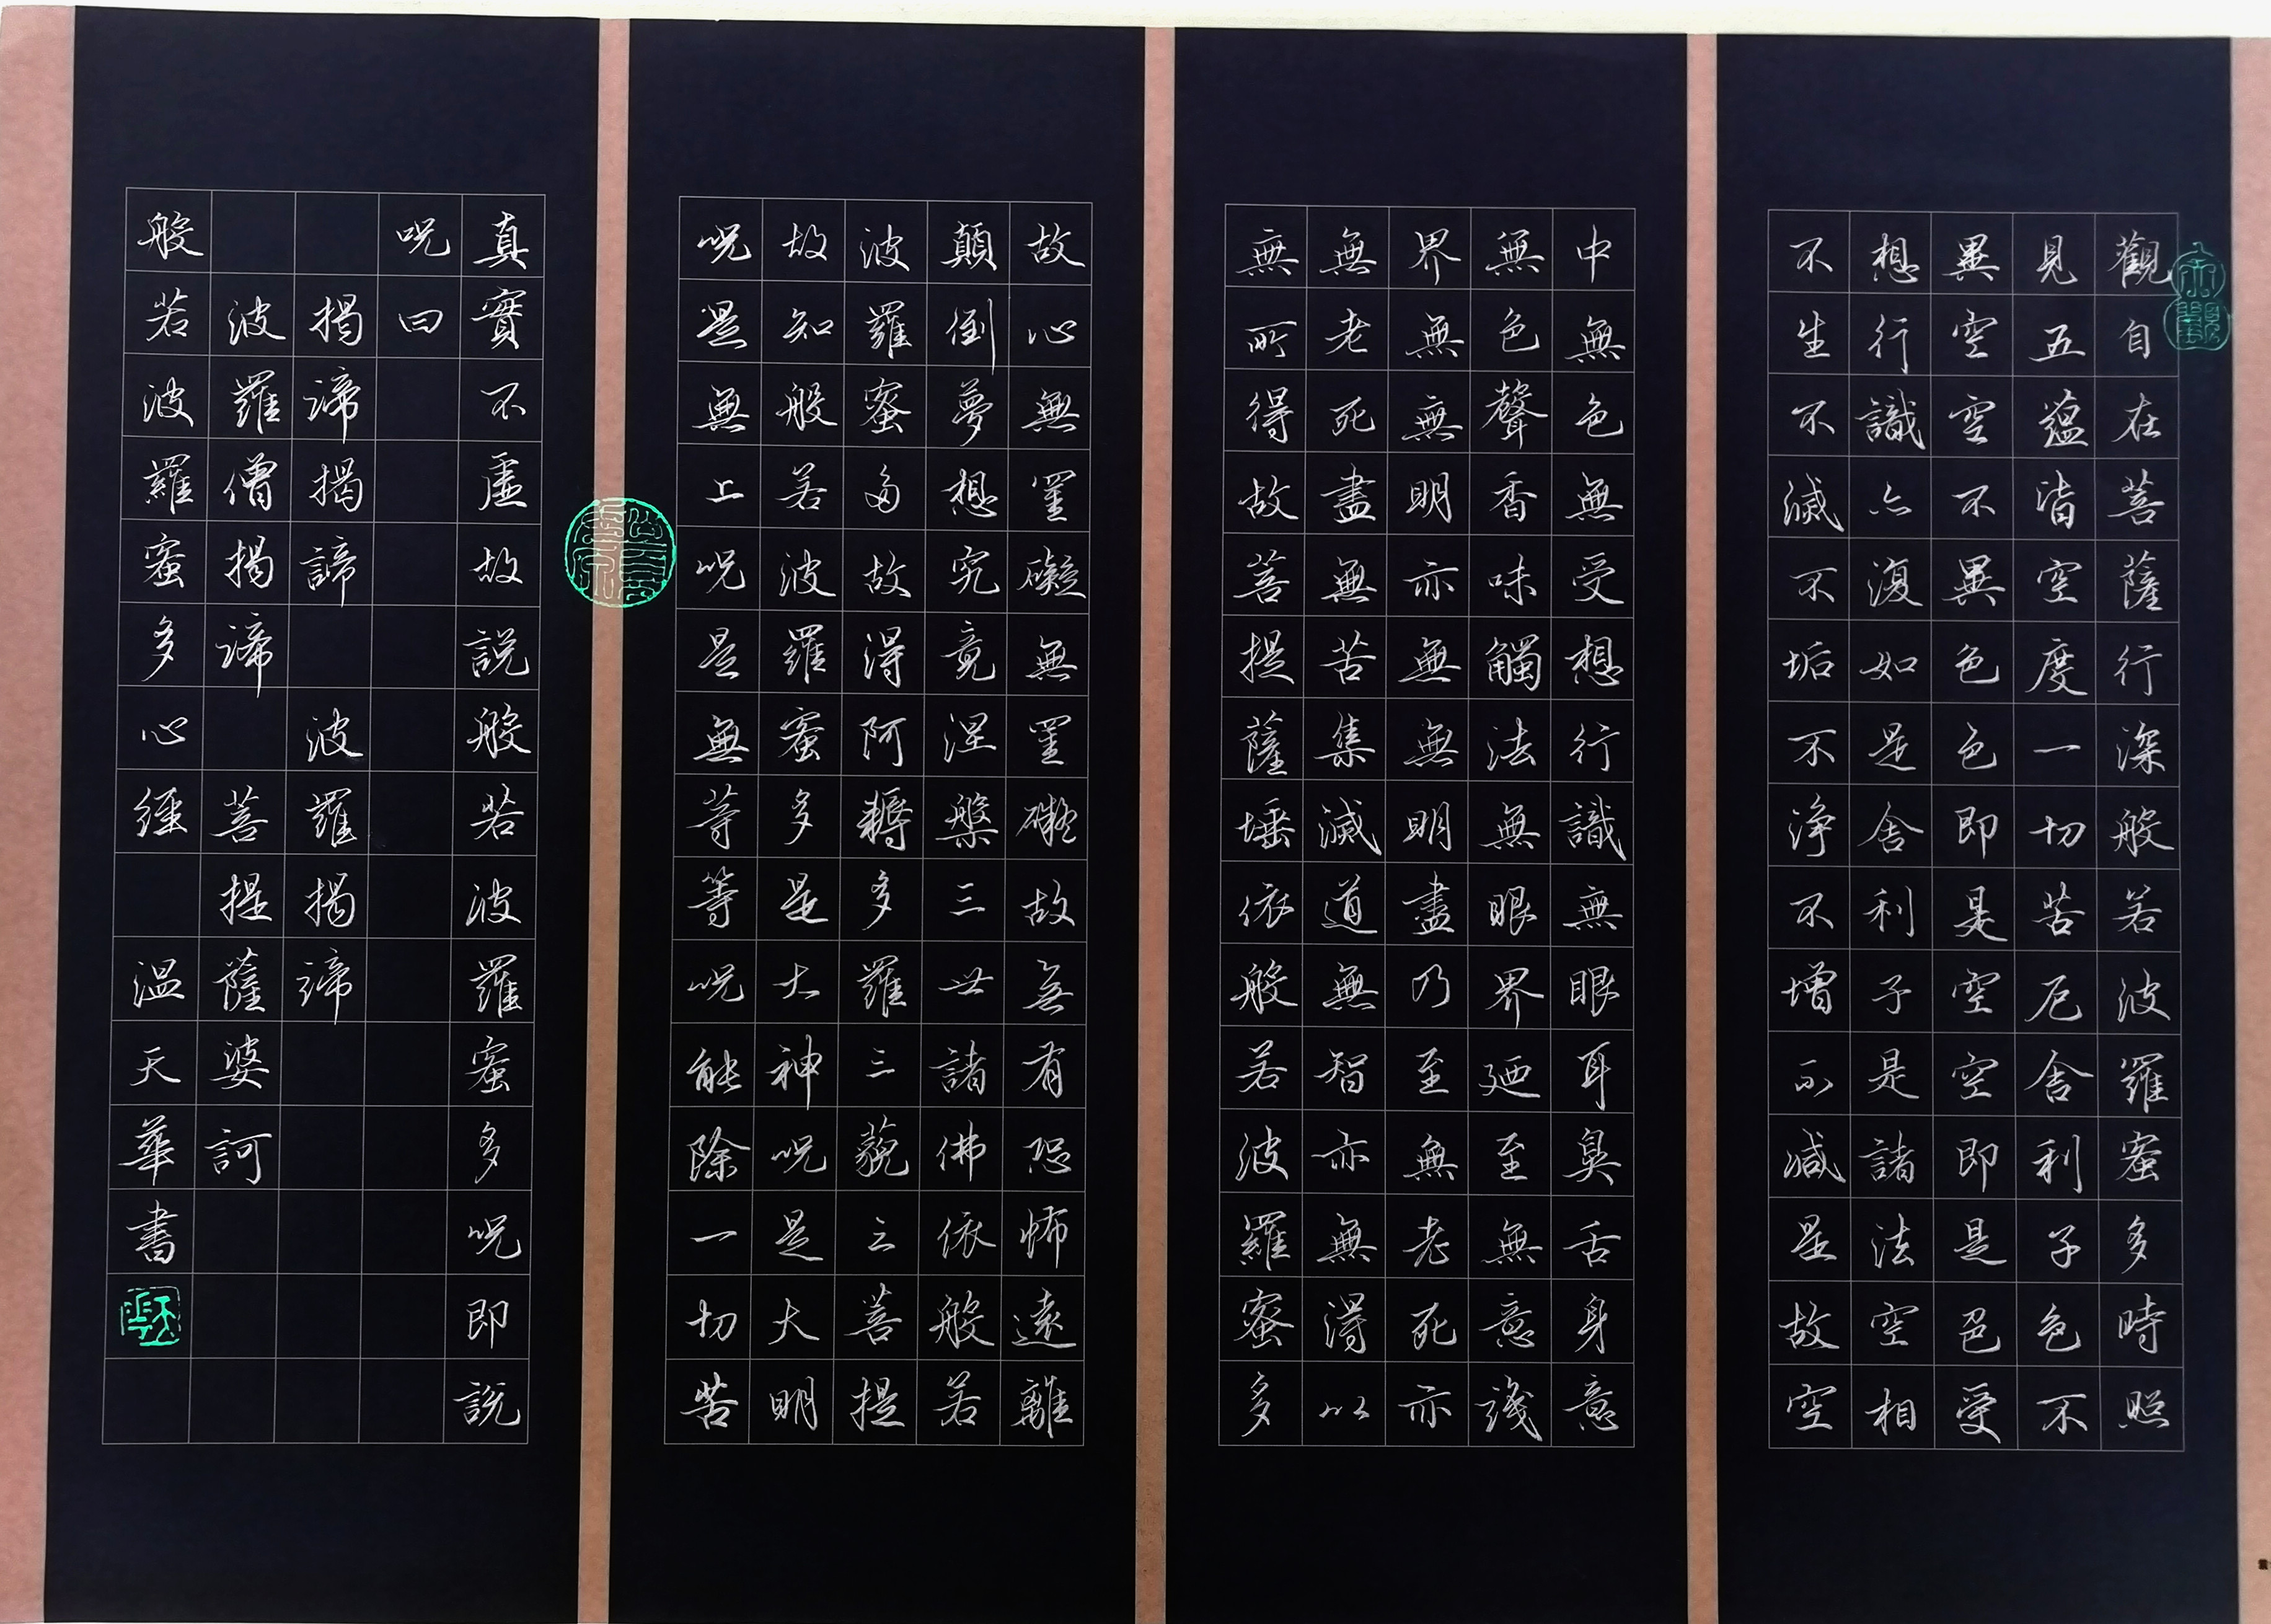 觀自在菩薩行深般若波羅蜜多時照
見五蘊皆空度一切苦厄舍利子色不
異空空不異色色即是空空即是色受
想行識亦復如是舍利子是諸法空相
不生不滅不垢不淨不增不減是故空
中無色無受想行識無眼耳鼻舌身意
無色聲香味觸法無眼界廼至無意識
界無無明亦無無明盡乃至無老死亦
無老死盡無苦集滅道無智亦無得以
無所得故菩提薩埵依般若波羅蜜多
故心無罣礙無罣礙故無有恐怖遠離
顛倒夢想究竟涅槃三世諸佛依般若
波羅蜜多故得阿耨多羅三藐三菩提
故知般若波羅蜜多是大神呪是大明
呪是無上呪是無等等呪能除一切苦
真實不虛故說般若波羅蜜多呪即說
呪曰
揭諦揭諦 波羅揭諦
波羅僧揭諦 菩提薩婆訶
般若波羅蜜多心經 溫天華書